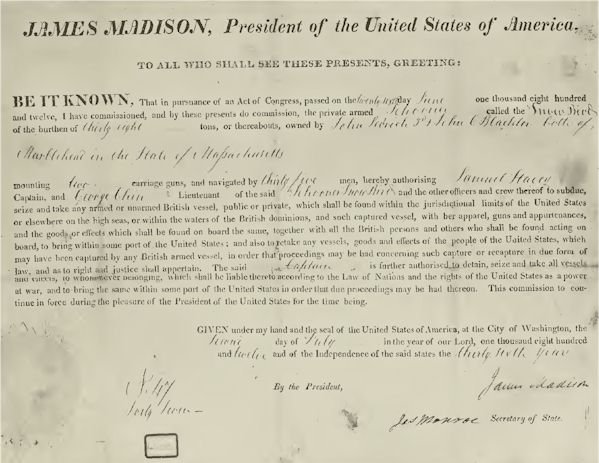 JAMES MADISON, President of the United States of America,
TO ALL WHO SHALL SEE THESE PRESENTS, GREETING:
BE IT KNOWN, That in pursuance of an Act of Congress, passed on the day June one thousand eight hundred
and twelve, I have commissioned, and by these presents do commission, the private armed Schooner called the Snow Bird
of the burthen of thirty eight tons, or thereabouts, owned by John & John Blackler both of
Marblehead in the State of Massachusetts
mounting carriage guns, and navigated by thirty five men, hereby authorising Samuel
Captain, and George Lieutenant of the said Schooner Snow Bird and the other officers and crew thereof to subdue,
seize and take any armed or unarmed British vessel, public or private, which shall be found within the jurisdictional limits of the United States
or elsewhere on the high seas, or within the waters of the British dominions, and such captured vessel, with her apparel, guns and appurtenances,
and the goods or effects which shall be found on board the same, together with all the British persons and others who shall be found acting on
board, to bring within some port of the United States; and also to retake any vessels, goods and effects of the people of the United States, which
may have been captured by any British armed vessel, in order that proceedings may be had concerning such capture or recapture in due form of
law, and as to right and justice shall appertain. The said Captain is further authorised to detain, seize and take all vessels
and effects, to whomsoever belonging, which shall be liable thereto according to the Law of Nations and the rights of the United States as a power
at war, and to bring the same within some port of the United States in order that due proceedings may be had thereon. This commission to con-
tinue in force during the pleasure of the President of the United States for the time being.
GIVEN under my hand and the seal of the United States of America, at the City of Washington, the
day of July in the year of our Lord, one thousand eight hundred
and twelve and of the Independence of the said states the thirty sixth year
No. 47
By the President,
James Madison
forty seven
Jas Monroe Secretary of State.